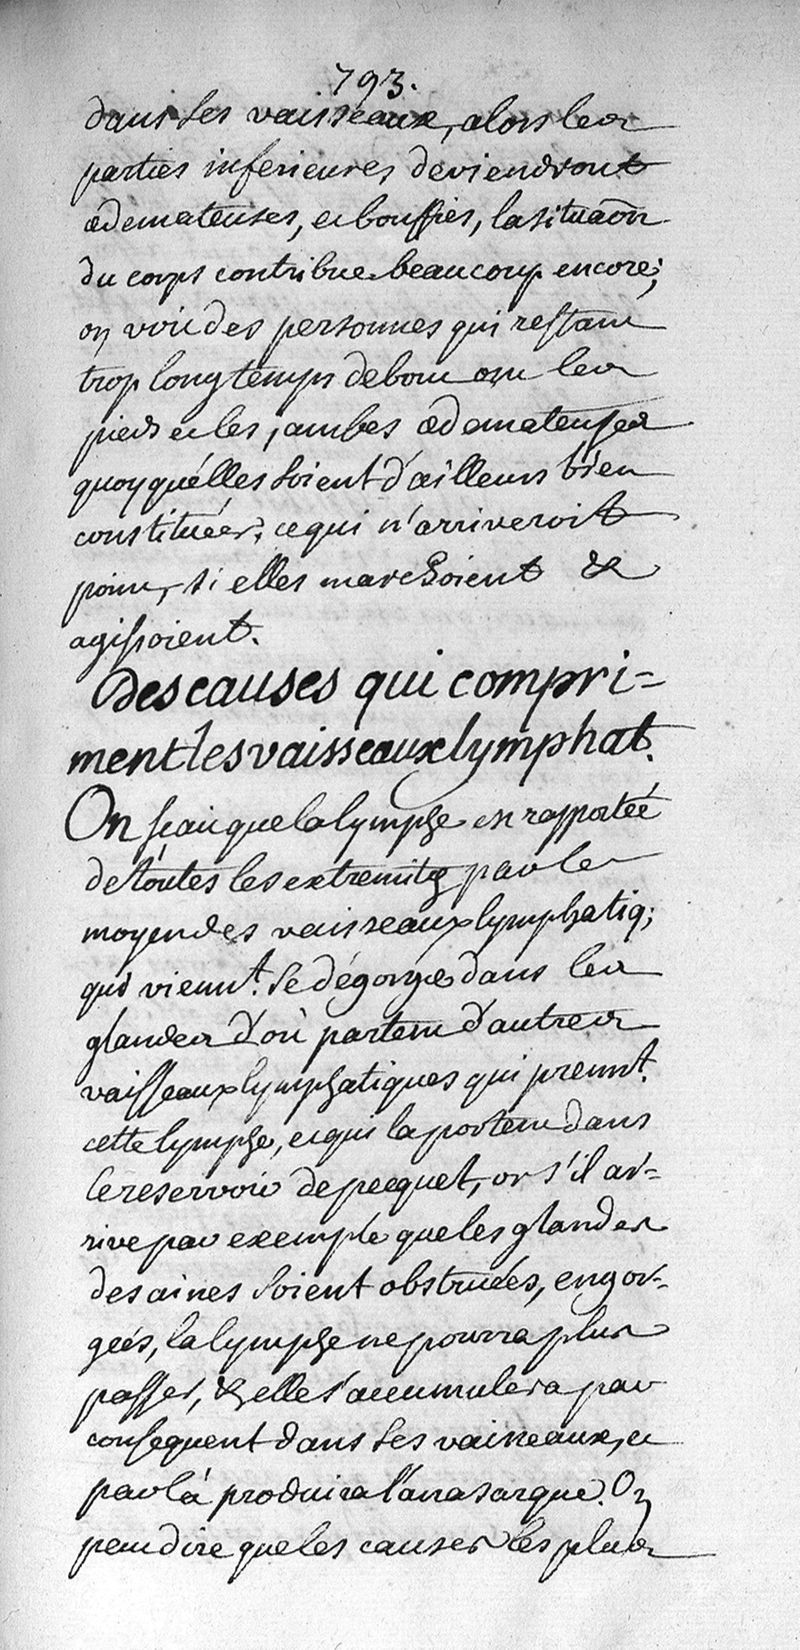 793.
dans ses vaisseaux, alors les
parties inferieures deviendront
œdemateuses, et bouffies, la situaōn
du corps contribue beaucoup encore;
on voit des personnes qui restant
trop longtemps debout ont les
pieds et les jambes œdemateuses
quoyqu'élles soient d'ailleurs bien
constituées; ce qui n'arriveroit
point, si elles marchoient &
agissoient.
Des causes qui compri=
ment les vaisseaux lymphat.
On sçait que la lymphe est rapportée
de toutes les extremités par le
moyen des vaisseaux lymphatiq;
qui viennt. se dégorger dans les
glandes d'où partent d'autres
vaisseaux lymphatiques qui prennt.
cette lymphe, et qui la portent dans
le reservoir de pecquet, or s'il ar=
rive par exemple que les glandes
des aines soient obstruées, engor=
geés, la lymphe ne pourra plus
passer, & elle s'accumulera par
consequent dans ses vaisseaux, et
par là produira l'anasarque. On
peut dire que les causes les plus